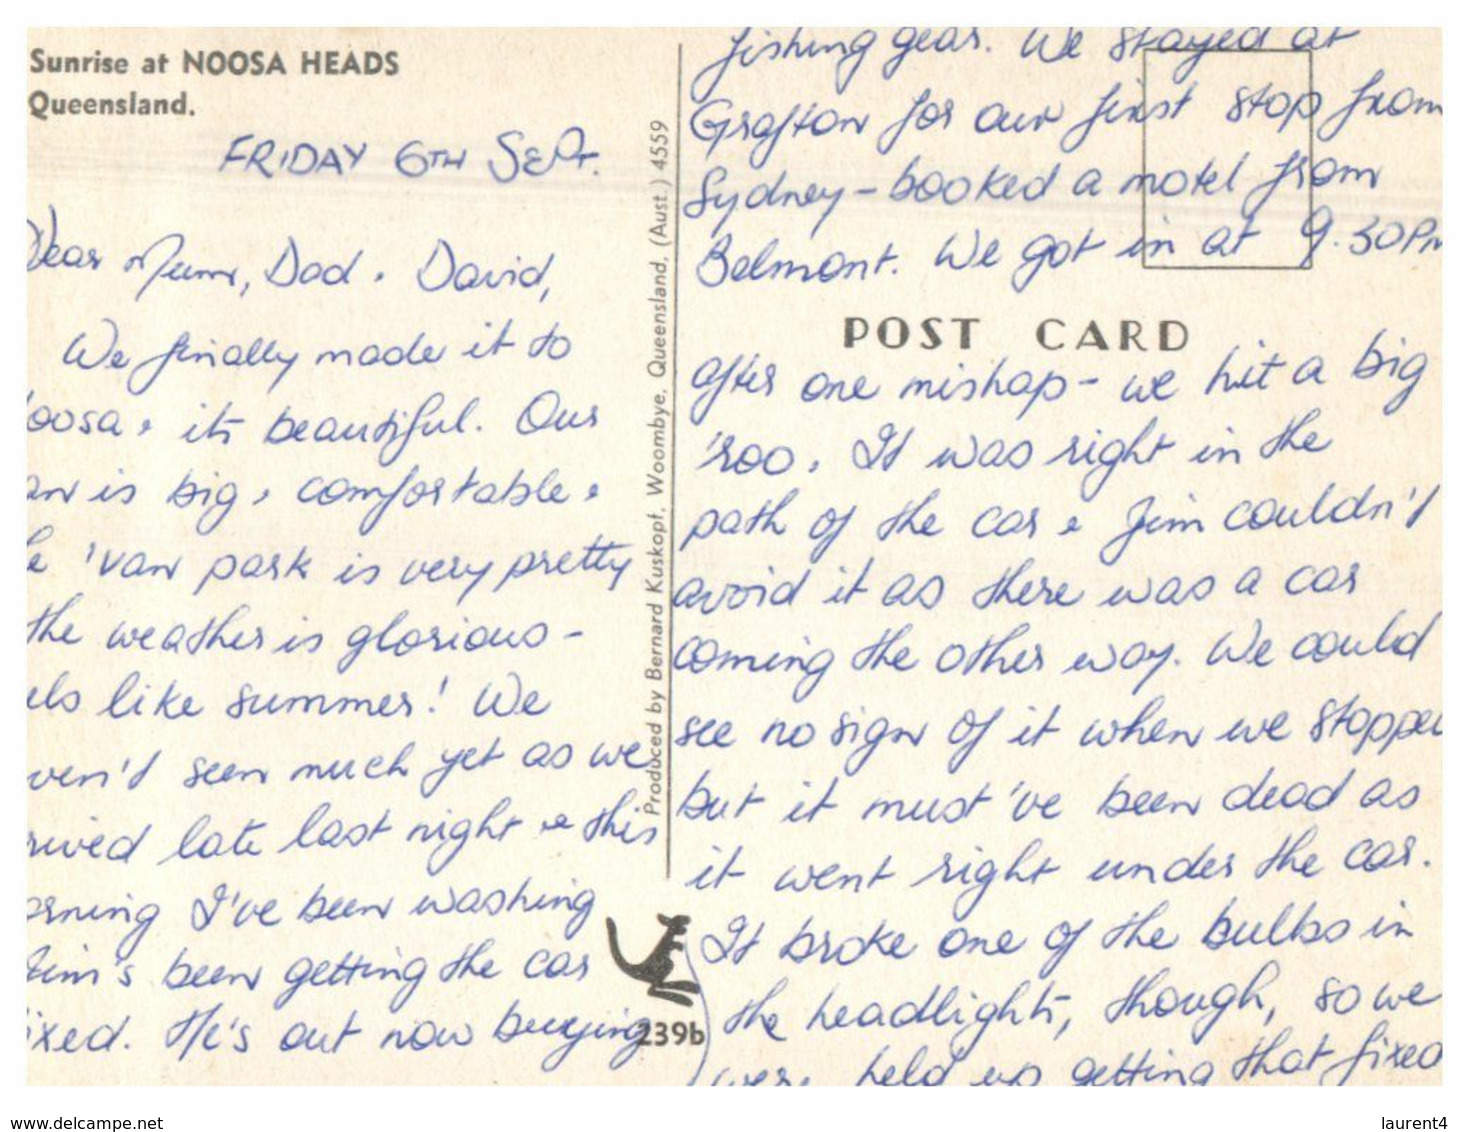 Sunrise at NOOSA HEADS
Queensland.
FRIDAY 6TH SEPT.
Dear Mum, Dad & David,
We finally made it to
oosa & it's beautiful. Our
an is big & comfortable &
e 'van park is very pretty
the weather is glorious -
els like summer! We
ven't seen much yet as we
rived late last night & this
orning I've been washing
Jim's been getting the car
ixed. He's out now buying
Produced by Bernard Kuskopf, Woombye, Queensland, (Aust.) 4559
239b
fishing gear. We stayed at
Grafton for our first stop from
Sydney - booked a motel from
Belmont. We got in at 9.30PM
POST CARD
after one mishap - we hit a big
'roo. It was right in the
path of the car & Jim couldn't
avoid it as there was a car
coming the other way. We could
see no sign of it when we stopped
but it must've been dead as
it went right under the car.
It broke one of the bulbs in
the headlights, though, so we
were held up getting that fixed
www.delcampe.net
laurent4